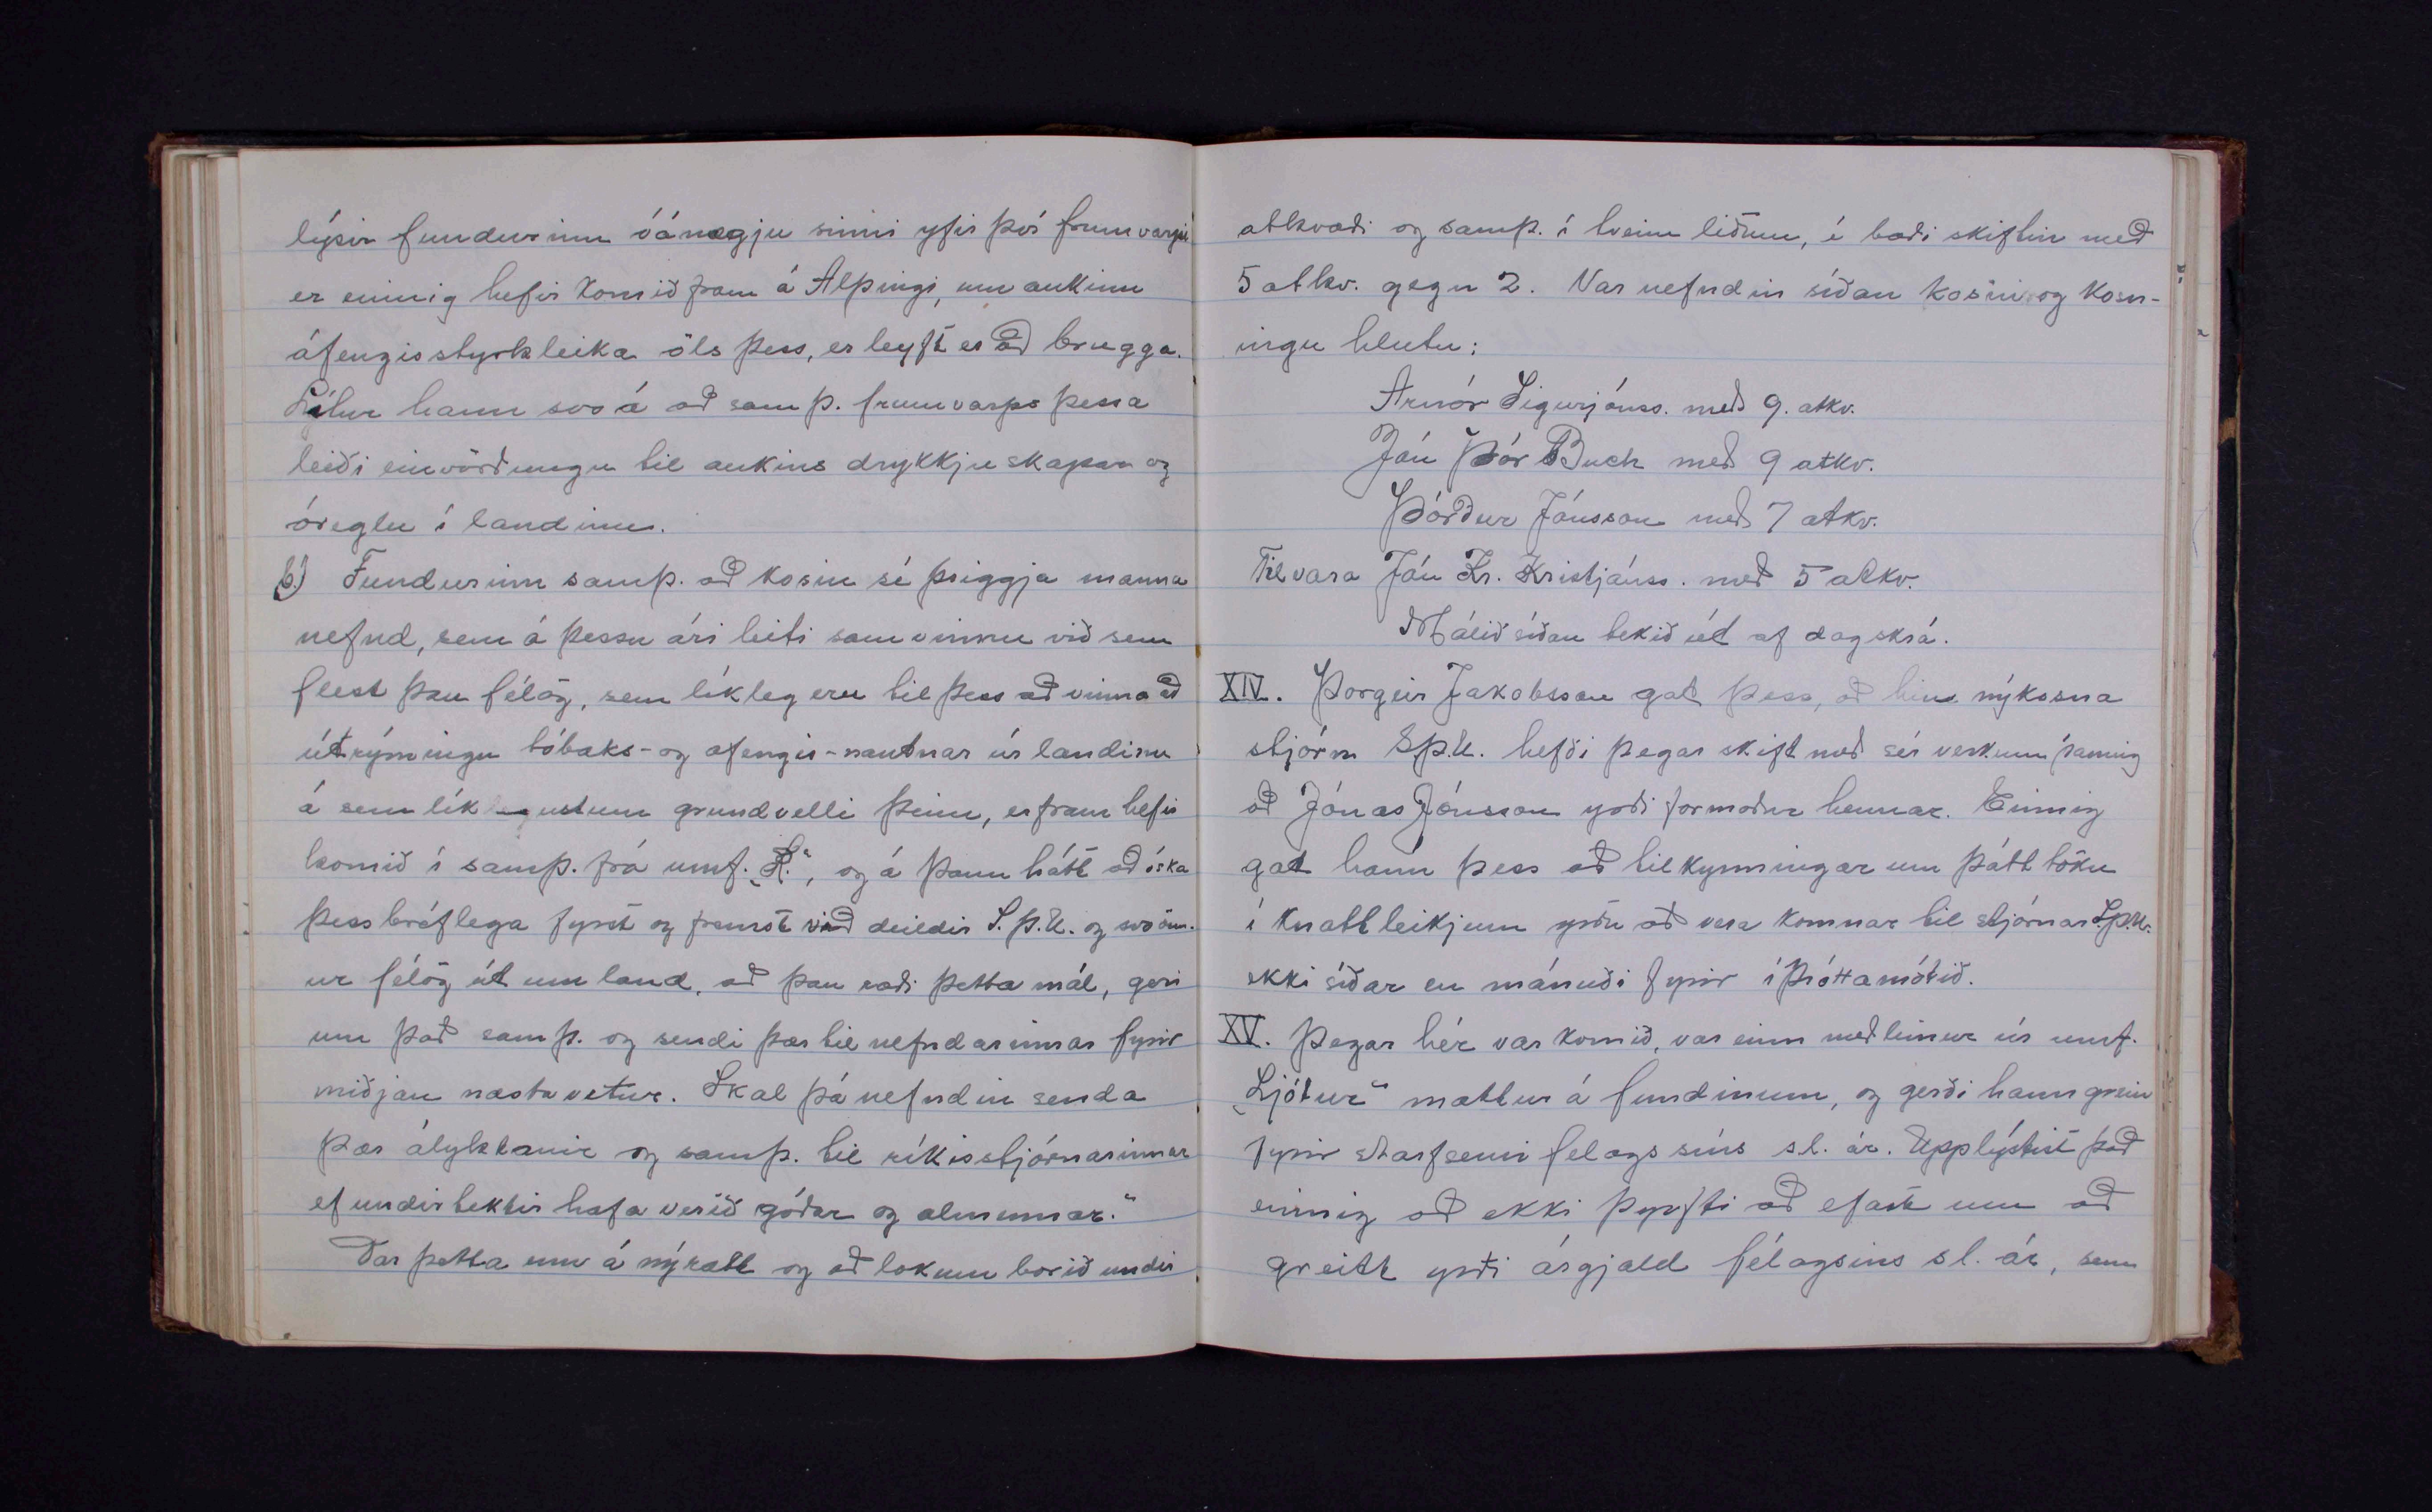 lýsir fundurinn óánægju sinni yfir því frumvarpi
er einnig hefir komið fram á Alþingi, um aukinn
áfengisstyrkleika öls þess, er leyft er að brugga.
Lítur hann svo á að samþ. frumvarps þessa
leiði einvörðungu til aukins drykkjuskapar og
óreglu í landinu.
b.) Fundurinn samþ. að kosin sé þriggja manna
nefnd, sem á þessu ári leiti samvinnu við sem
flest þau félög, sem líkleg eru til þess að vinna að
útrýmingu tóbaks- og áfengis-nautnar úr landinu
á sem líklegustum grundvelli þeim, er fram hefir
komið í samþ. frá umf. ,,R.", og á þann hátt að óska
þess bréflega fyrst og fremst við deildir S.þ.U. og svo önn-
ur félög út um land, að þau ræði þetta mál, geri
um það samþ. og sendi þær til nefndarinnar fyrir
miðjan næsta vetur. Skal þá nefndin senda
þær ályktanir og samþ. til ríkisstjórnarinnar
ef undirtektir hafa verið góðar og almennar."
Var þetta enn á ný rætt og að lokum borið undir
atkvæði og samþ. í tveim liðum, í bæði skiftin með
5 atkv. gegn 2. Var nefndin síðan kosin og kosn-
ingu hlutu:
Arnór Sigurjónss. með 9. atkv.
Jón Þór Buch með 9 atkv.
Þórður Jónsson með 7 atkv.
Til vara Jón Kr. Kristjánss. með 5 atkv.
Málið síðan tekið út af dagskrá.
XIV. Þorgeir Jakobsson gat þess, að hin nýkosna
stjórn S.þ.U. hefði þegar skift með sér verkum þannig
að Jónas Jónsson yrði formaður hennar. Einnig
gat hann þess að tilkynningar um þátttöku
í knattleikjum yrðu að vera komnar til stjórnar S.þ.U.
ekki síðar en mánuði fyrir íþróttamótið.
XV. Þegar hér var komið, var einn meðlimur úr umf.
,,Ljótur" mættur á fundinum, og gerði hann grein
fyrir starfsemi félags síns sl. ár. Upplýstist það
einnig að ekki þyrfti að efast um að
greitt yrði árgjald félagsins sl. ár, sem